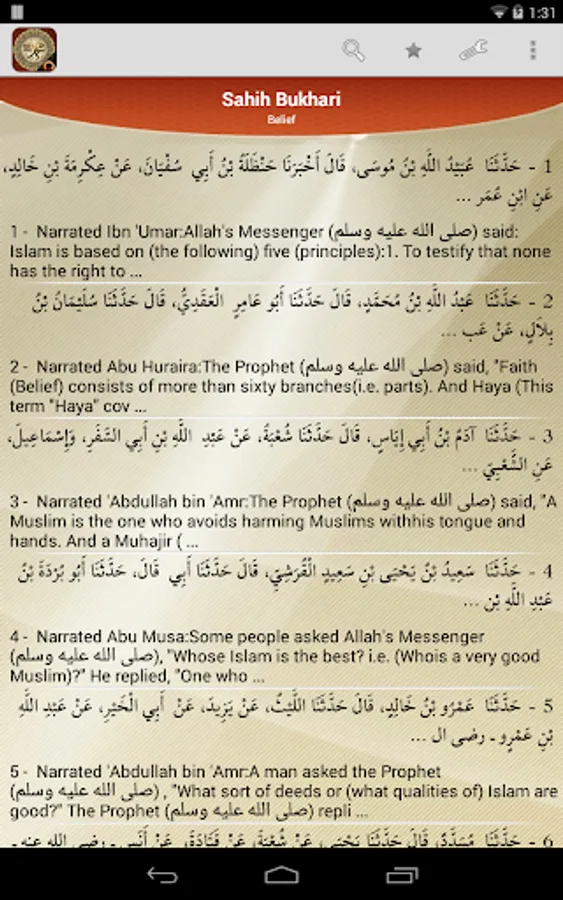 1:31
Sahih Bukhari
Belief
1 - حَدَّثَنَا عُبَيْدُ اللَّهِ بْنُ مُوسَى، قَالَ أَخْبَرَنَا حَنْظَلَةُ بْنُ أَبِي سُفْيَانَ، عَنْ عِكْرِمَةَ بْنِ خَالِدٍ،
عَنِ ابْنِ عُمَر ...
1 - Narrated Ibn 'Umar:Allah's Messenger (صلى الله عليه وسلم) said:
Islam is based on (the following) five (principles):1. To testify that none
has the right to ...
2 - حَدَّثَنَا عَبْدُ اللَّهِ بْنُ مُحَمَّدٍ، قَالَ حَدَّثَنَا أَبُو عَامِرٍ الْعَقَدِيُّ، قَالَ حَدَّثَنَا سُلَيْمَانُ بْنُ
بِلاَلٍ، عَنْ عَب ...
2 - Narrated Abu Huraira:The Prophet (صلى الله عليه وسلم) said, "Faith
(Belief) consists of more than sixty branches(i.e. parts). And Haya (This
term "Haya" cov ...
3 - حَدَّثَنَا آدَمُ بْنُ أَبِي إِيَاسٍ، قَالَ حَدَّثَنَا شُعْبَةُ، عَنْ عَبْدِ اللَّهِ بْنِ أَبِي السَّفَرِ، وَإِسْمَاعِيلَ،
عَنِ الشَّعْبِيِّ ...
3 - Narrated 'Abdullah bin 'Amr:The Prophet (صلى الله عليه وسلم) said, "A
Muslim is the one who avoids harming Muslims withhis tongue and
hands. And a Muhajir ( ...
4 - حَدَّثَنَا سَعِيدُ بْنُ يَحْيَى بْنِ سَعِيدٍ الْقُرَشِيِّ، قَالَ حَدَّثَنَا أَبِي قَالَ، حَدَّثَنَا أَبُو بُرْدَةَ بْنُ
عَبْدِ اللَّهِ بْن ...
4 - Narrated Abu Musa:Some people asked Allah's Messenger
(صلى الله عليه وسلم), "Whose Islam is the best? i.e. (Whois a very good
Muslim)?" He replied, "One who ...
5 - حَدَّثَنَا عَمْرُو بْنُ خَالِدٍ، قَالَ حَدَّثَنَا اللَّيْثُ، عَنْ يَزِيدَ، عَنْ أَبِي الْخَيْرِ، عَنْ عَبْدِ اللَّهِ
بْنِ عَمْرٍو ـ رضى ال ...
5 - Narrated 'Abdullah bin 'Amr:A man asked the Prophet
(صلى الله عليه وسلم) , "What sort of deeds or (what qualities of) Islam are
good?" The Prophet (صلى الله عليه وسلم) repli ...
6 - حَدَّثَنَا مُسَدَّدٌ، قَالَ حَدَّثَنَا يَحْيَى، عَنْ شُعْبَةَ، عَنْ قَتَادَةَ، عَنْ أَنَسٍ ـ رضى الله عنه ـ